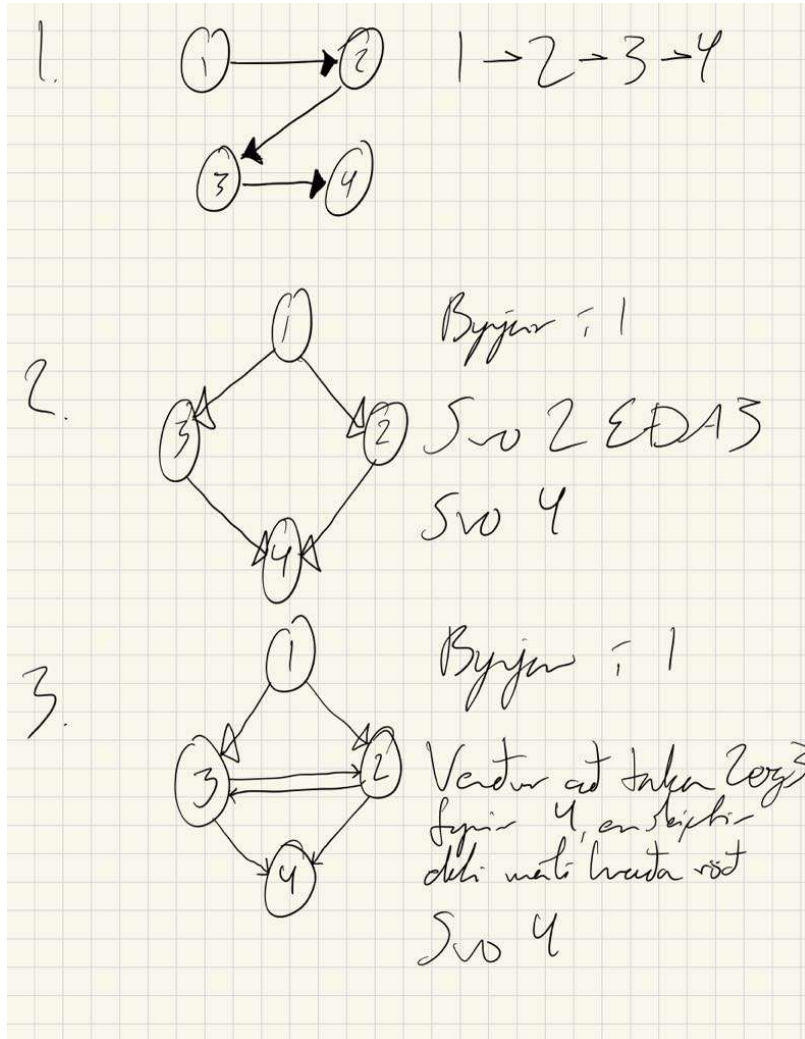 1.
1 2 1→2→3→4
3 4
1
Byrjar í 1
2.
3 2 Svo 2 EÐA 3
4 Svo 4
1 Byrjar í 1
3.
3 2 Verður að taka 2 og 3
fyrir 4, en skiptir
4 ekki máli hvaða röð
Svo 4